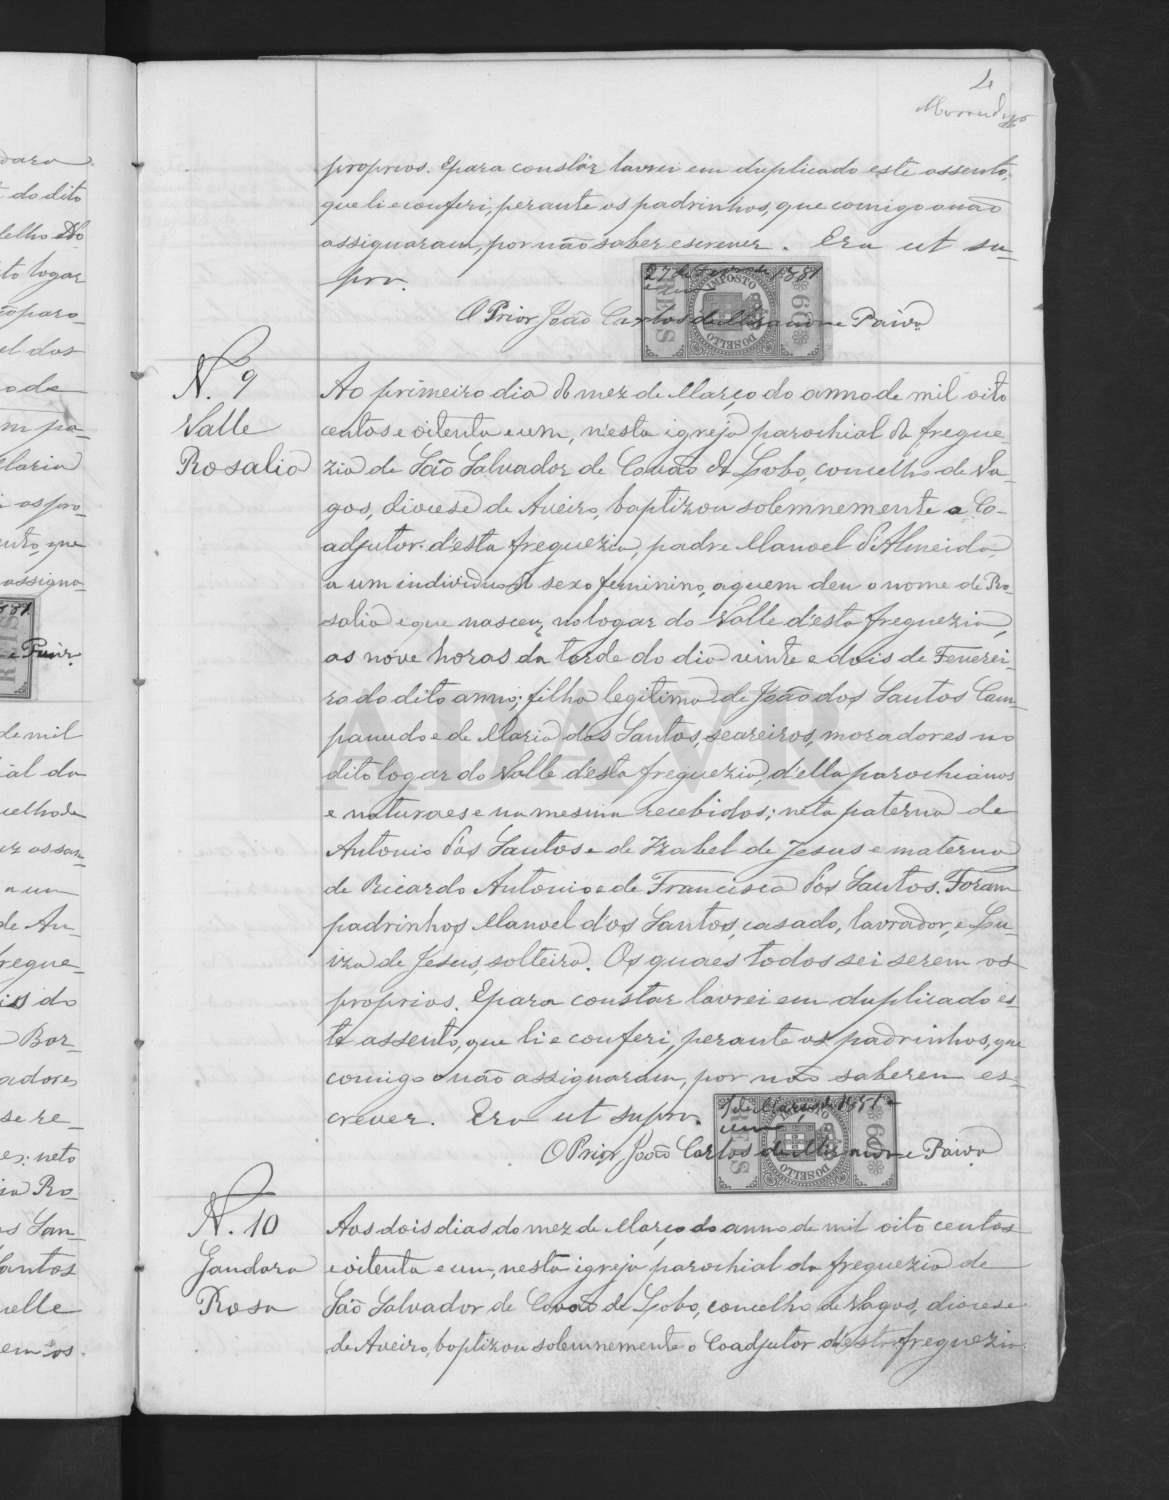 4
proprios. E para constar lavrei em duplicado este assento,
que li e conferi, perante os padrinhos, que comigo o não
assignaram, por não saber escrever. Era ut su-
pra.
27 de Fevereiro de 1881
IMPOSTO DO SELLO
REIS 60
O Prior João Carlos de Miranda e Paiva
N. 9
Valle
Rosalia
Ao primeiro dia do mez de Março do anno de mil oito
centos e oitenta e um, n'esta igreja parochial da fregue-
zia de São Salvador de Covão do Lobo, concelho de Va-
gos, diocese de Aveiro, baptizou solemnemente o Co-
adjutor d'esta freguezia, padre Manoel d'Almeida,
a um individuo do sexo feminino, a quem deu o nome de Ro-
salia e que nasceu no logar do Valle d'esta freguezia,
as nove horas da tarde do dia vinte e dois de Feverei-
ro do dito anno; filha legitima de João dos Santos Cam-
panudo e de Maria dos Santos, seareiros, moradores no
dito logar do Valle d'esta freguezia, d'ella parochianos
e naturaes e na mesma recebidos; neta paterna de
Antonio dos Santos e de Izabel de Jesus e materna
de Ricardo Antonio e de Francisca dos Santos. Foram
padrinhos Manoel dos Santos, casado, lavrador, e Lu-
iza de Jesus, solteira. Os quaes todos sei serem os
proprios. E para constar lavrei em duplicado es-
te assento, que li e conferi, perante os padrinhos, que
comigo o não assignaram, por não saberem es-
crever. Era ut supra.
1 de Março de 1881 e
um
IMPOSTO DO SELLO
REIS 60
O Prior João Carlos de Miranda e Paiva
N. 10
Gandara
Rosa
Aos dois dias do mez de Março do anno de mil oito centos
e oitenta e um, nesta igreja parochial da freguezia de
São Salvador de Covão do Lobo, concelho de Vagos, diocese
de Aveiro, baptizou solemnemente o Coadjutor d'esta freguezia
ADAVR